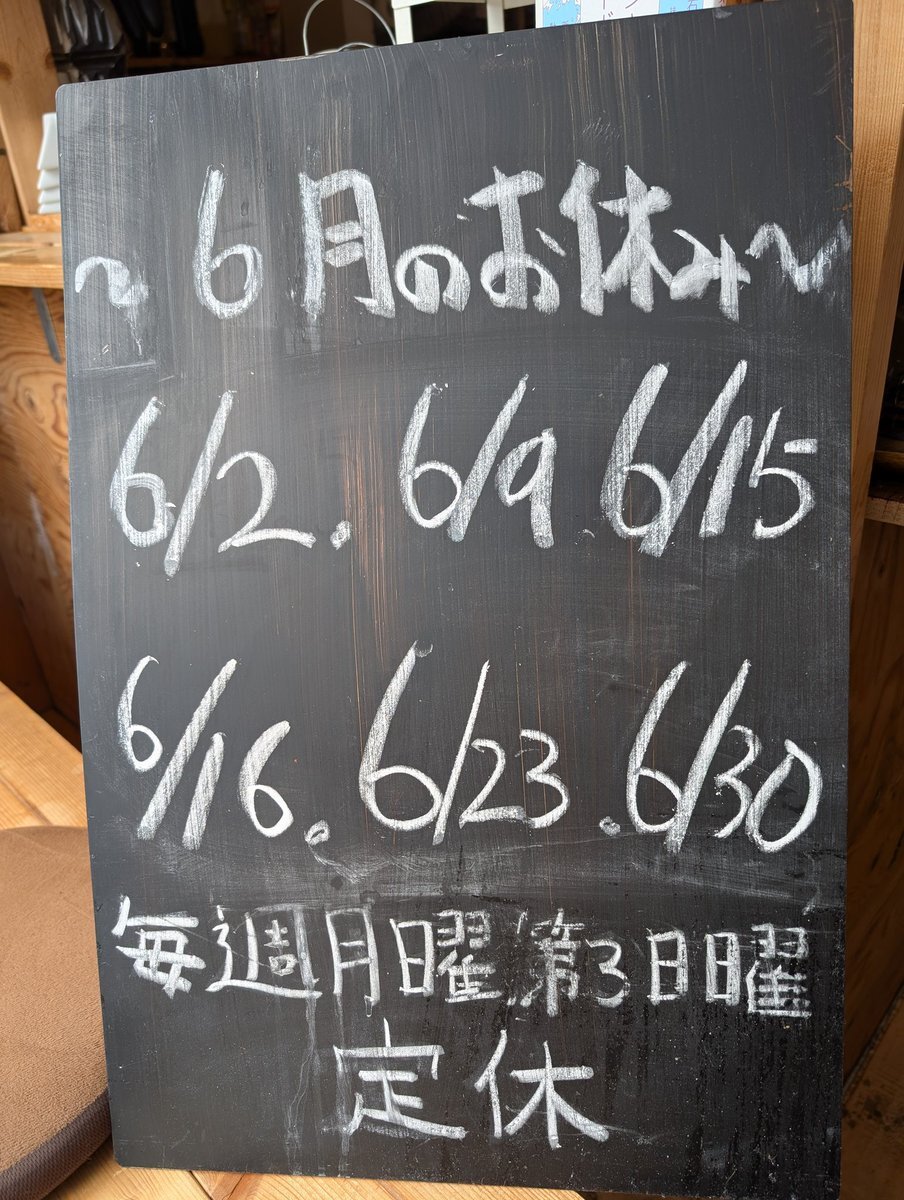 ~6月のお休み~
6/2. 6/9 6/15
6/16. 6/23. 6/30
毎週月曜 第3日曜
定休